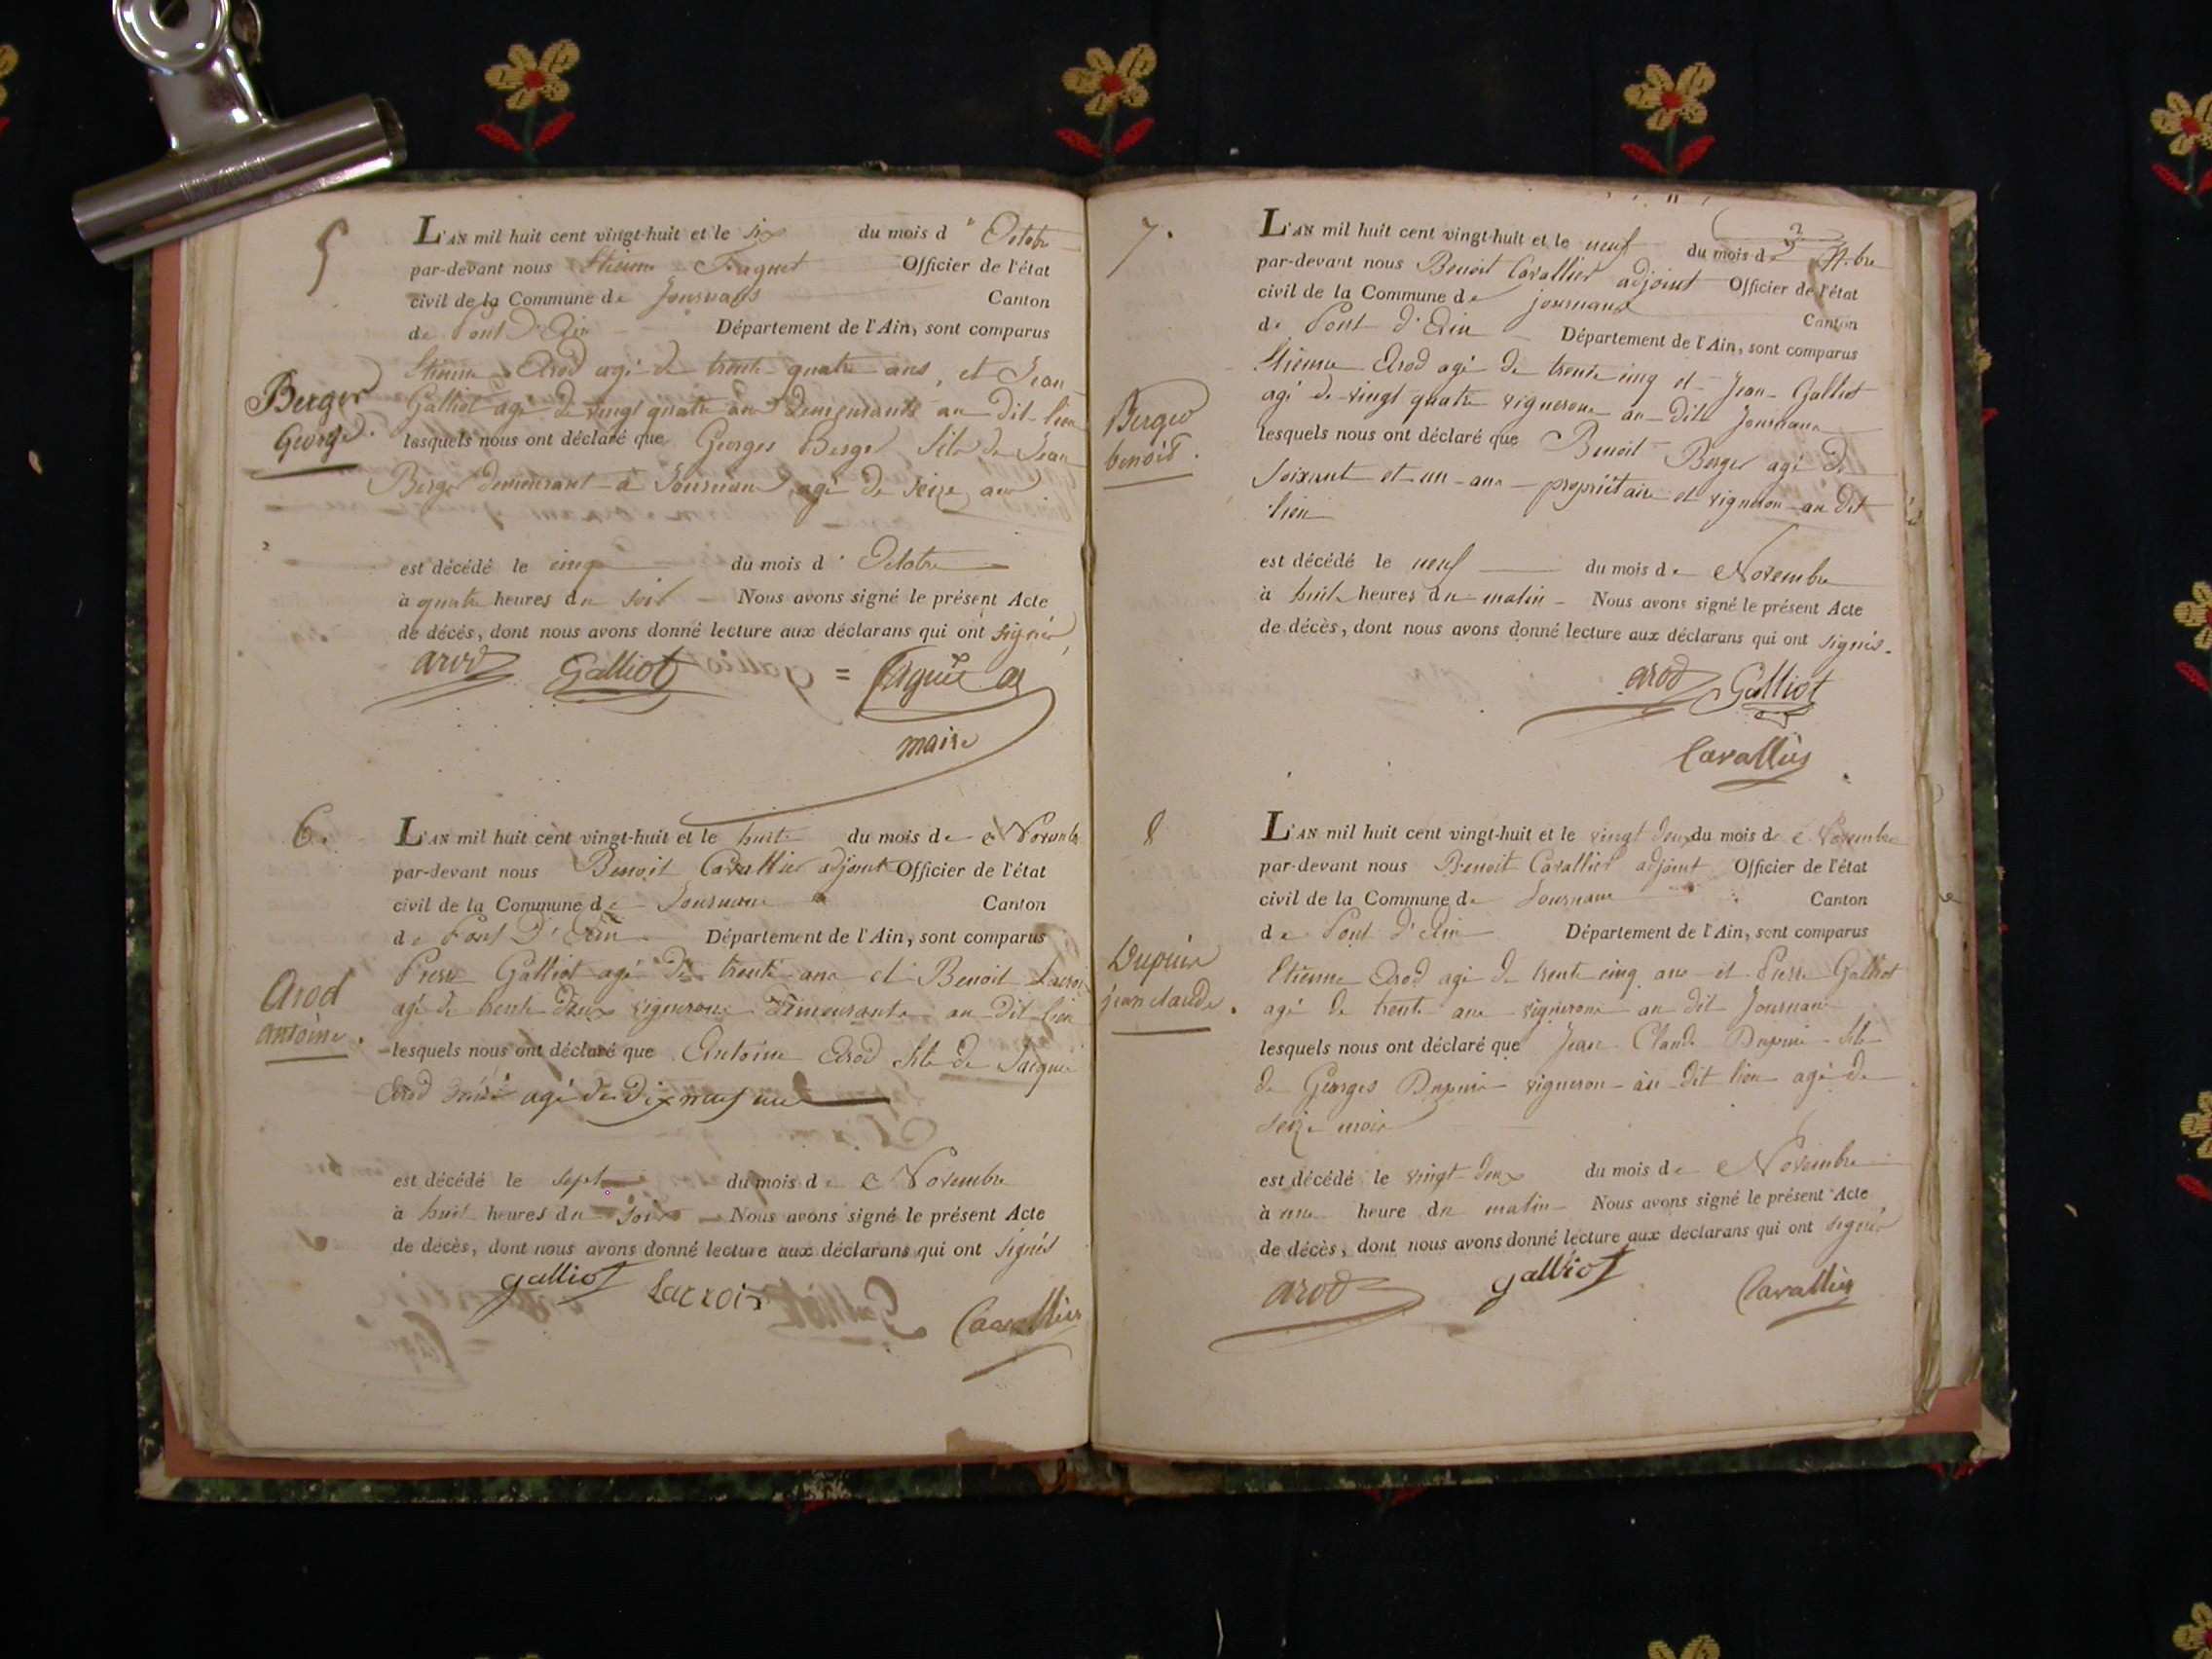 5
L'AN mil huit cent vingt-huit et le six du mois d'Octobre
par-devant nous Etienne Faguet Officier de l'état
civil de la Commune de Journans Canton
de Pont D'Ain Département de l'Ain, sont comparus
Etienne Arod agé de trente quatre ans, et Jean
Galliot agé de vingt quatre ans demeurants au dit lieu
Berger
George.
lesquels nous ont déclaré que Georges Berger fils de Jean
Berger demeurant à Journans agé de seize ans
est décédé le cinq du mois d'Octobre
à quatre heures du soir Nous avons signé le présent Acte
de décès, dont nous avons donné lecture aux déclarans qui ont signés,
arod Galliot = Faguet
maire
6.
L'AN mil huit cent vingt-huit et le huit du mois de Novembre
par-devant nous Benoit Cavallier adjoint Officier de l'état
civil de la Commune de Journans Canton
de Pont D'Ain Département de l'Ain, sont comparus
Pierre Galliot agé de trente ans et Benoit Lacroix
agé de trente deux vignerons demeurants au dit lieu
Arod
antoine.
lesquels nous ont déclaré que Antoine Arod fils de Jacques
Arod agé de Dix neuf ans
est décédé le sept du mois de Novembre
à huit heures du soir Nous avons signé le présent Acte
de décès, dont nous avons donné lecture aux déclarans qui ont signés
galliot Lacroix
Cavallier
7.
L'AN mil huit cent vingt-huit et le neuf du mois de 9.bre
par-devant nous Benoit Cavallier adjoint Officier de l'état
civil de la Commune de journans Canton
de Pont d'Ain Département de l'Ain, sont comparus
Etienne Arod agé de trente cinq et Jean Galliot
agé de vingt quatre vignerons au dit Journans
Berger
benoit.
lesquels nous ont déclaré que Benoit Berger agé de
soixante et un ans propriétaire et vigneron au dit
lieu
est décédé le neuf du mois de Novembre
à huit heures du matin Nous avons signé le présent Acte
de décès, dont nous avons donné lecture aux déclarans qui ont signés.
arod Galliot
Cavallier
8
L'AN mil huit cent vingt-huit et le vingt deux du mois de Novembre
par-devant nous Benoit Cavallier adjoint Officier de l'état
civil de la Commune de Journans Canton
de Pont d'Ain Département de l'Ain, sont comparus
Etienne Arod agé de trente cinq ans et Pierre Galliot
agé de trente ans vignerons au dit Journans
Dupuis
jean claude.
lesquels nous ont déclaré que Jean Claude Dupuis fils
de Georges Dupuis vigneron au dit lieu agé de
seize mois
est décédé le vingt deux du mois de Novembre
à une heure du matin Nous avons signé le présent Acte
de décès, dont nous avons donné lecture aux déclarans qui ont signés
arod galliot Cavallier